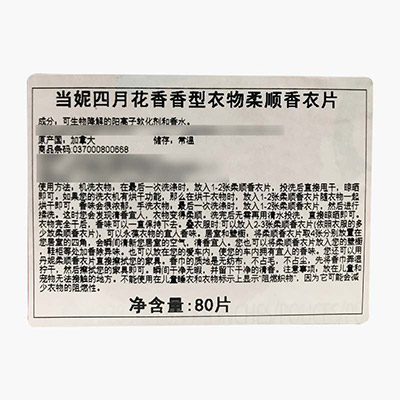 当妮四月花香香型衣物柔顺香衣片
成分：可生物降解的阳离子软化剂和香水。
原产国：加拿大 储存：常温
商品条码：037000800668
使用方法：机洗衣物，在最后一次洗涤时，放入1-2张柔顺香衣片，投洗后直接甩干，晾晒
即可。如果您的洗衣机有烘干功能，那么在烘干衣物时，放入1-2张柔顺香衣片随衣物一起
烘干即可，香味会很浓郁。手洗衣物，在最后一次洗涤时，放入1-2张柔顺香衣片，然后进行
揉洗，这时您会发现清香宜人，衣物变得柔顺，洗完后无需再用清水投洗，直接晾晒即可。
衣物完全干后，香味可以一直保持下去。叠衣服时可以放入2-3张柔顺香衣片(依照衣服的多
少放柔顺香衣片)，可以永葆衣物的宜人香味。居室和壁橱，将柔顺香衣片取4张分别放置在
您居室的四角，会瞬间清新您居室的空气，清香宜人，您也可以将香衣片放入您的壁橱
、鞋柜等处加香除异味。也可以放在您的爱车内，使您的车内拥有宜人的香味。您还可以用
丹妮柔顺香衣片直接擦拭您的家具，香巾的质地是无纺布，不占毛，不占尘。先将香巾弄湿
拧干，然后擦拭您的家具即可，瞬间干净无瑕，并留下干净的清香。注意事项，放在儿童和
宠物无法接触的地方。不能使用在儿童睡衣和衣物标示上显示"阻燃织物"，因为它可能会减
少衣物的阻燃性。
净含量:80片